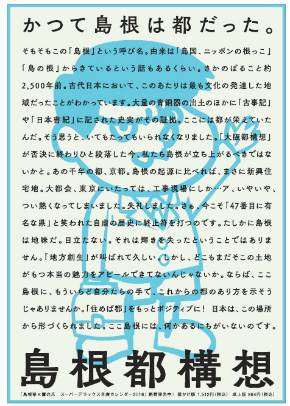 かつて島根は都だった。
そもそもこの「島根」という呼び名。由来は「島国、ニッポンの根っこ」
「島の根」からきているという話もあるくらい。さかのぼること約
2,500年前。古代日本において、このあたりは最も文化の発達した地
域だったことがわかっています。大量の青銅器の出土のほかに「古事記」
や「日本書紀」に記された史実がその証拠。ここには都が栄えていた
んだ。そう思うと、いてもたってもいられなくなりました。「大阪都構想」
が否決に終わりひと段落した今、私たち島根が立ち上がるべきではな
いかと。あの千年の都、京都。島根の起源に比べれば、まさに新興住
宅地。大都会、東京にいたっては、工事現場にしか…ア、いやいや、
つい熱くなってしまいました。失礼しました。さぁ、今こそ「47番目に有
名な県」と笑われた自虐の歴史に終止符を打つのです。たしかに島根
は地味だ。目立たない。それは輝きを失ったということではありま
せん。「地方創生」が叫ばれて久しい。しかし、どこもまだその土地
がもつ本当の魅力をアピールできてないんじゃないか。ならば、ここ
島根に、もういちど自分たちの手で、これからの都のあり方を示そう
じゃありませんか。「住めば都」をもっとポジティブに！ 日本は、この場所
から形づくられました。ここ島根には、何かあるにちがいないのです。
島根都構想
「島根県×鷹の爪 スーパーデラックス自虐カレンダー2016」絶賛発売中！ 壁かけ版 1,512円(税込) 卓上版 864円(税込)